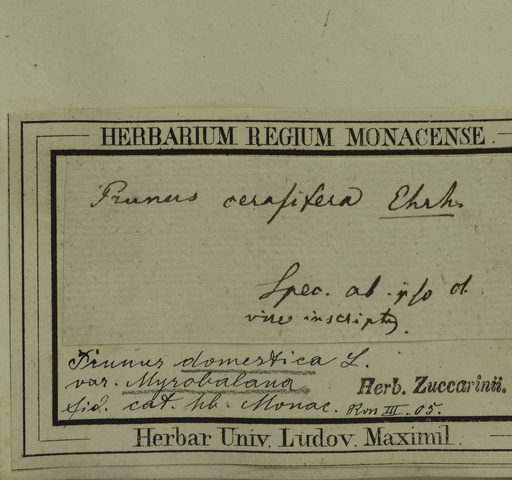 HERBARIUM REGIUM MONACENSE.
Prunus cerasifera Ehrh.
Spec. ab ipso cl.
viro inscripta.
Prunus domestica L.
var. Myrobalana
fid. cat. hb. Monac. III. 05.
Herb. Zuccarinii.
Herbar Univ. Ludov. Maximil.